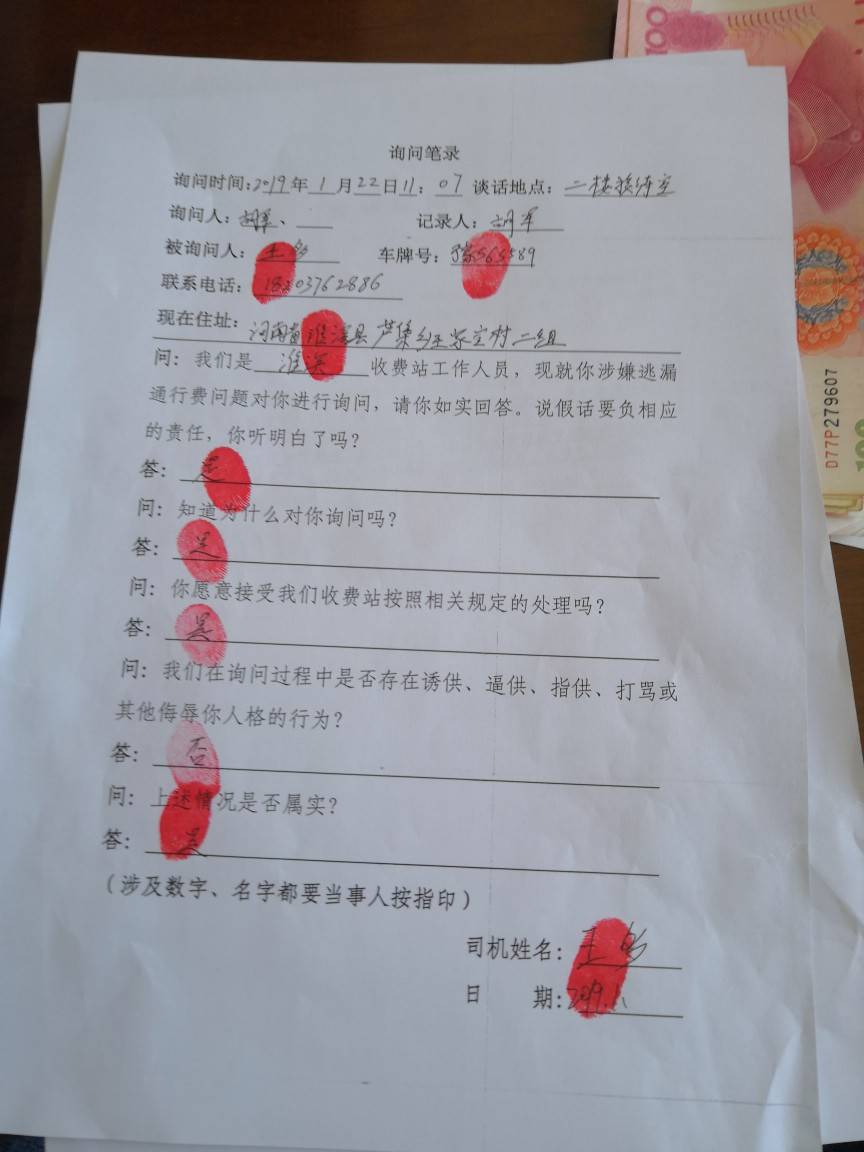 100
询问笔录
询问时间:2019年1月22日11:07 谈话地点:二楼接待室
询问人:胡军、 记录人:胡军
被询问人:王 车牌号:
联系电话:18203762886
现在住址:河南省淮滨县芦集乡 村二组
问:我们是 淮滨 收费站工作人员,现就你涉嫌逃漏
通行费问题对你进行询问,请你如实回答。说假话要负相应
的责任,你听明白了吗?
答:是
问:知道为什么对你询问吗?
答:是
问:你愿意接受我们收费站按照相关规定的处理吗?
答:是
问:我们在询问过程中是否存在诱供、逼供、指供、打骂或
其他侮辱你人格的行为?
答:否
问:上述情况是否属实?
答:是
(涉及数字、名字都要当事人按指印)
司机姓名:王
日 期:2019.1.
D77P279607
100